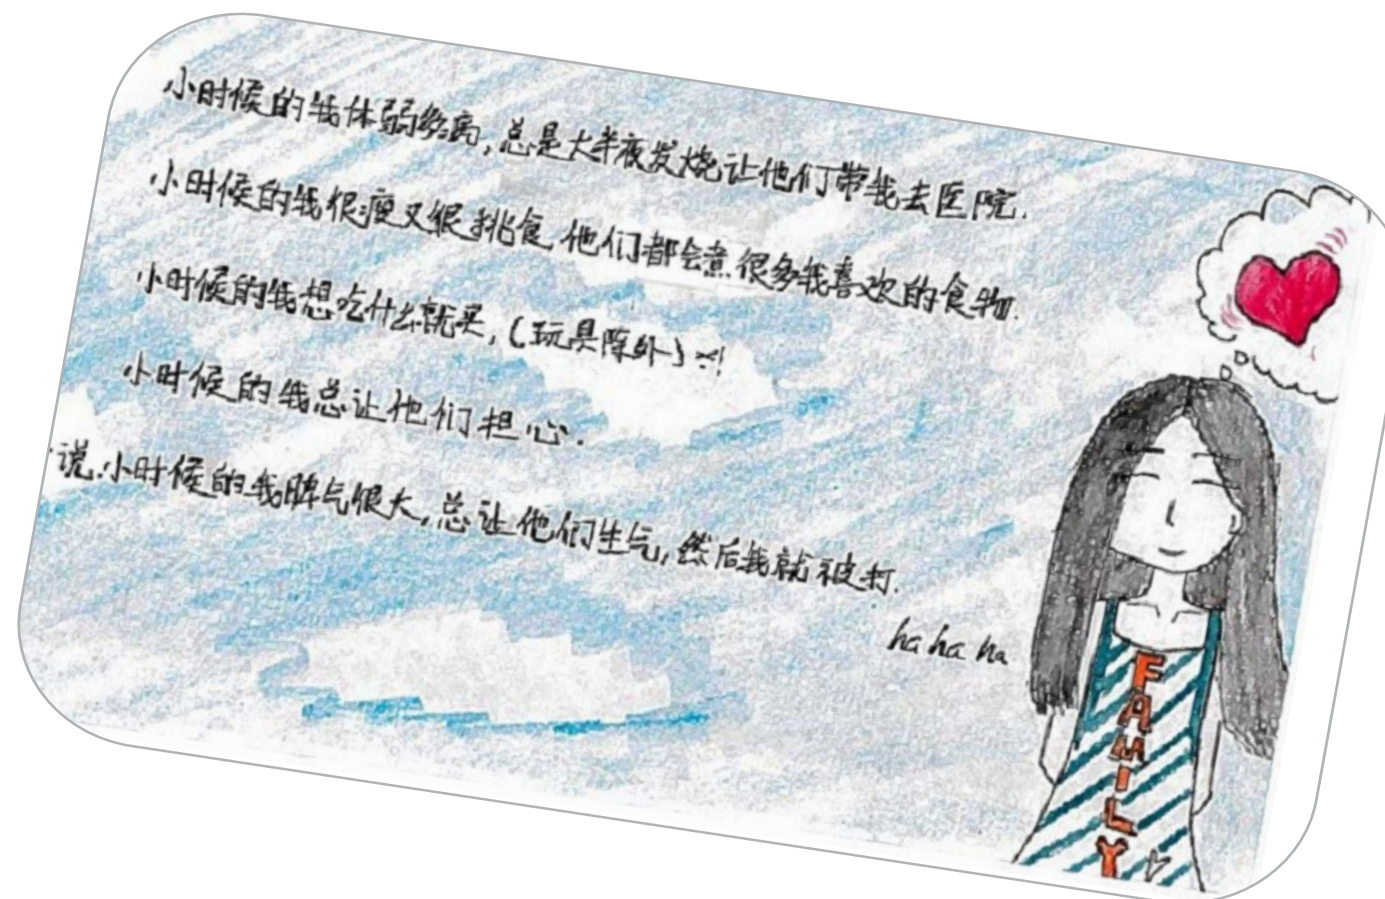 小时候的我体弱多病,总是大半夜发烧让他们带我去医院.
小时候的我很瘦又很挑食,他们都会煮很多我喜欢的食物.
小时候的我想吃什么就买,(玩具除外)
小时候的我总让他们担心.
说.小时候的我脾气很大,总让他们生气,然后我就被打.
ha ha ha
FAMILY